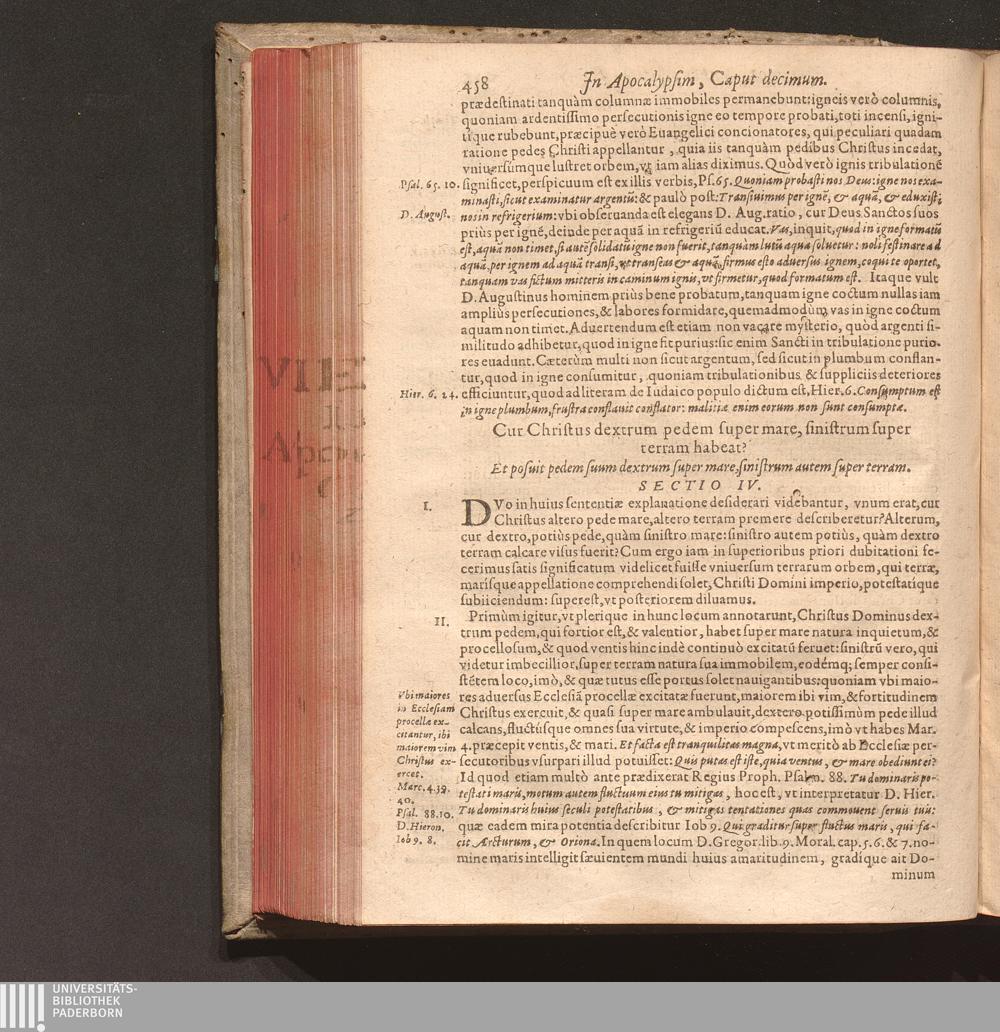 458 In Apocalypsim, Caput decimum.
prædestinati tanquàm columnæ immobiles permanebunt: igneis verò columnis,
quoniam ardentissimo persecutionis igne eo tempore probati, toti incensi, igni-
tique rubebunt, præcipuè verò Euangelici concionatores, qui peculiari quadam
ratione pedes Christi appellantur, quia iis tanquàm pedibus Christus incedat,
vniuersúmque lustret orbem, vt iam alias diximus. Quòd verò ignis tribulationē
Psal. 65. 10. significet, perspicuum est ex illis verbis, Ps. 65. Quoniam probasti nos Deus: igne nos exa-
minasti, sicut examinatur argentū: & paulò post: Transiuimus per ignē, & aquā, & eduxisti
D. August. nos in refrigerium: vbi obseruanda est elegans D. Aug. ratio, cur Deus Sanctos suos
priùs per ignē, deinde per aquā in refrigeriū educat. Vas, inquit, quod in igne formatū
est, aquā non timet, si autē solidatū igne non fuerit, tanquàm lutū aqua soluetur: noli festinare ad
aquā, per ignem ad aquā transi, vt transeas & aquā, firmus esto aduersus ignem, coqui te oportet,
tanquam vas fictum mitteris in caminum ignis, vt firmetur, quod formatum est. Itaque vult
D. Augustinus hominem priùs bene probatum, tanquam igne coctum nullas iam
amplius persecutiones, & labores formidare, quemadmodùm vas in igne coctum
aquam non timet. Aduertendum est etiam non vacare mysterio, quòd argenti si-
militudo adhibetur, quod in igne fit purius: sic enim Sancti in tribulatione purio-
res euadunt. Cæterùm multi non sicut argentum, sed sicut in plumbum conflan-
tur, quod in igne consumitur, quoniam tribulationibus & suppliciis deteriores
Hier. 6. 24. efficiuntur, quod ad literam de Iudaico populo dictum est, Hier. 6. Consumptum est
in igne plumbum, frustra conflauit conflator: malitiæ enim eorum non sunt consumptæ.
Cur Christus dextrum pedem super mare, sinistrum super
terram habeat?
Et posuit pedem suum dextrum super mare, sinistrum autem super terram.
SECTIO IV.
I. DVo in huius sententiæ explanatione desiderari videbantur, vnum erat, cur
Christus altero pede mare, altero terram premere describeretur? Alterum,
cur dextro, potiùs pede, quàm sinistro mare: sinistro autem potiùs, quàm dextro
terram calcare visus fuerit? Cum ergo iam in superioribus priori dubitationi fe-
cerimus satis significatum videlicet fuisse vniuersum terrarum orbem, qui terræ,
marisque appellatione comprehendi solet, Christi Domini imperio, potestatique
subiiciendum: superest, vt posteriorem diluamus.
II. Primùm igitur, vt plerique in hunc locum annotarunt, Christus Dominus dex-
trum pedem, qui fortior est, & valentior, habet super mare natura inquietum, &
procellosum, & quod ventis hinc indè continuò excitatū feruet: sinistrū vero, qui
videtur imbecillior, super terram natura sua immobilem, eodémq; semper consi-
stētem loco, imò, & quæ tutus esse portus solet nauigantibus: quoniam vbi maio-
res aduersus Ecclesiā procellæ excitatæ fuerunt, maiorem ibi vim, & fortitudinem
Christus exercuit, & quasi super mare ambulauit, dextero potissimùm pede illud
calcans, fluctúsque omnes sua virtute, & imperio compescens, imò vt habes Mar.
4. præcepit ventis, & mari. Et facta est tranquilitas magna, vt meritò ab Ecclesiæ per-
secutoribus vsurpari illud potuisset: Quis putas est iste, quia ventus, & mare obediunt ei?
Id quod etiam multò ante prædixerat Regius Proph. Psalm. 88. Tu dominaris po-
testati maris, motum autem fluctuum eius tu mitigas, hoc est, vt interpretatur D. Hier.
Tu dominaris huius seculi potestatibus, & mitigas tentationes quas commouent seruis tuis:
quæ eadem mira potentia describitur Iob 9. Qui graditur super fluctus maris, qui fa-
cit Arcturum, & Oriona. In quem locum D. Gregor. lib. 9. Moral. cap. 5. 6. & 7. no-
mine maris intelligit sæuientem mundi huius amaritudinem, gradíque ait Do-
minum
Vbi maiores
in Ecclesiam
procellæ ex-
citantur, ibi
maiorem vim
Christus ex-
ercet.
Marc. 4. 39.
40.
Psal. 88. 10.
D. Hieron.
Iob 9. 8.
UNIVERSITÄTS-
BIBLIOTHEK
PADERBORN